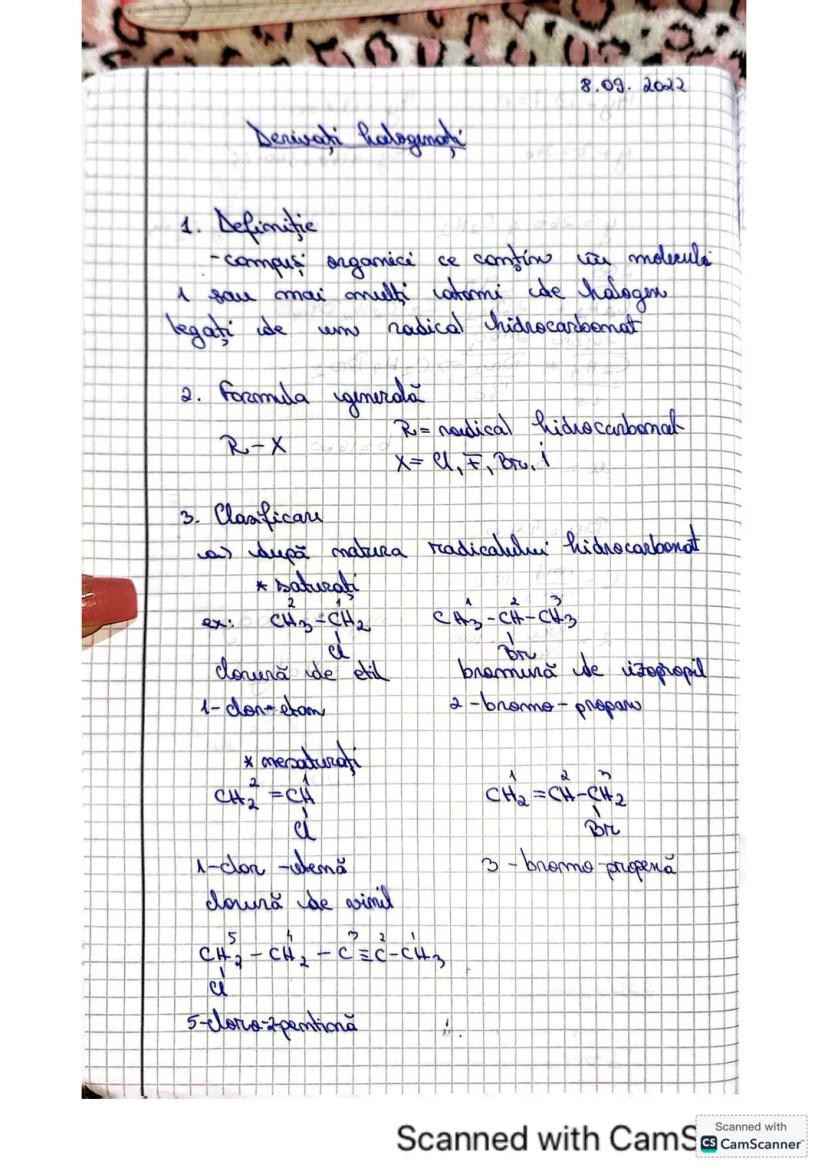 8.09.2022
Derivați halogenați
1. Definiție
-compuși organici ce conțin în moleculă
1 sau mai mulți atomi de halogen
legați de un radical hidrocarbonat
2. Formula generală
R-X
R = radical hidrocarbonat
X = Cl, F, Br, I
3. Clasificare
a) după natura radicalului hidrocarbonat
* saturați
2 1
ex: CH3-CH2
Cl
clorură de etil
1-clor-etan
1 2 3
CH3-CH-CH3
Br
bromură de izopropil
2-bromo-propan
* nesaturați
2 1
CH2=CH
Cl
1-clor-etenă
clorură de vinil
1 2 3
CH2=CH-CH2
Br
3-bromo-propenă
5 4 3 2 1
CH2-CH2-C≡C-CH3
Cl
5-cloro-2-pentină
Scanned with CamS
Scanned with
CS CamScanner